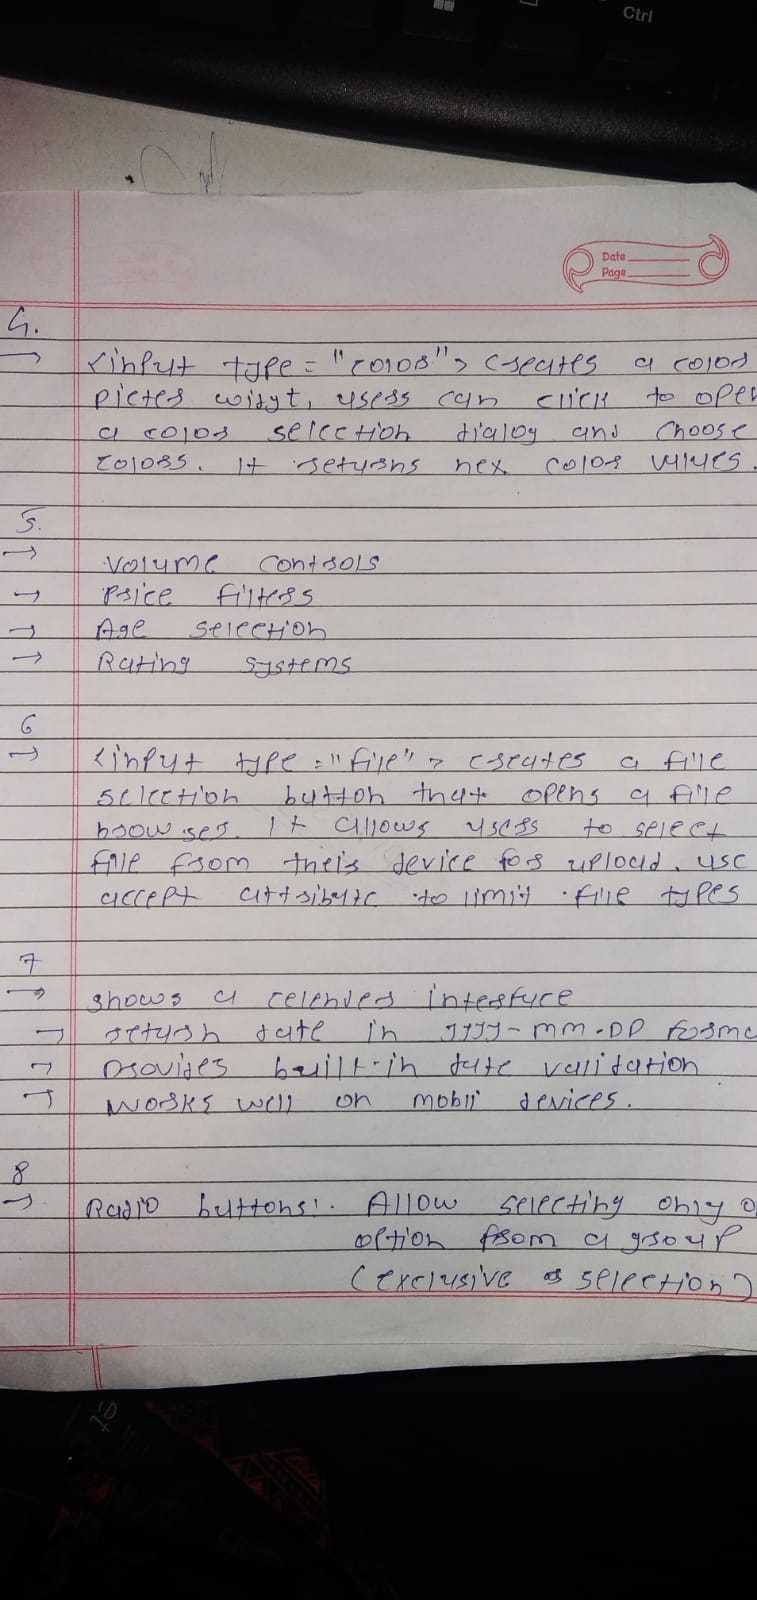 Ctrl
Date
Page
4.
→ <input type = "color"> creates a color
picter widgt, users can click to open
a color selection dialog and choose
colors. It returns hex color values.
5.
→ Volume controls
→ Price filters
→ Age selection
→ Rating systems
6
→ <input type = "file" > creates a file
selection button that opens a file
browser. It allows users to select
file from their device for upload. use
accept attribute to limit file types
7
→ shows a celender interface
→ return date in YYYY-MM-DD forma
→ Provides built-in date validation
→ works well on mobil devices.
8
→ Radio buttons: Allow selecting only o
option from a group
(exclusive selection)